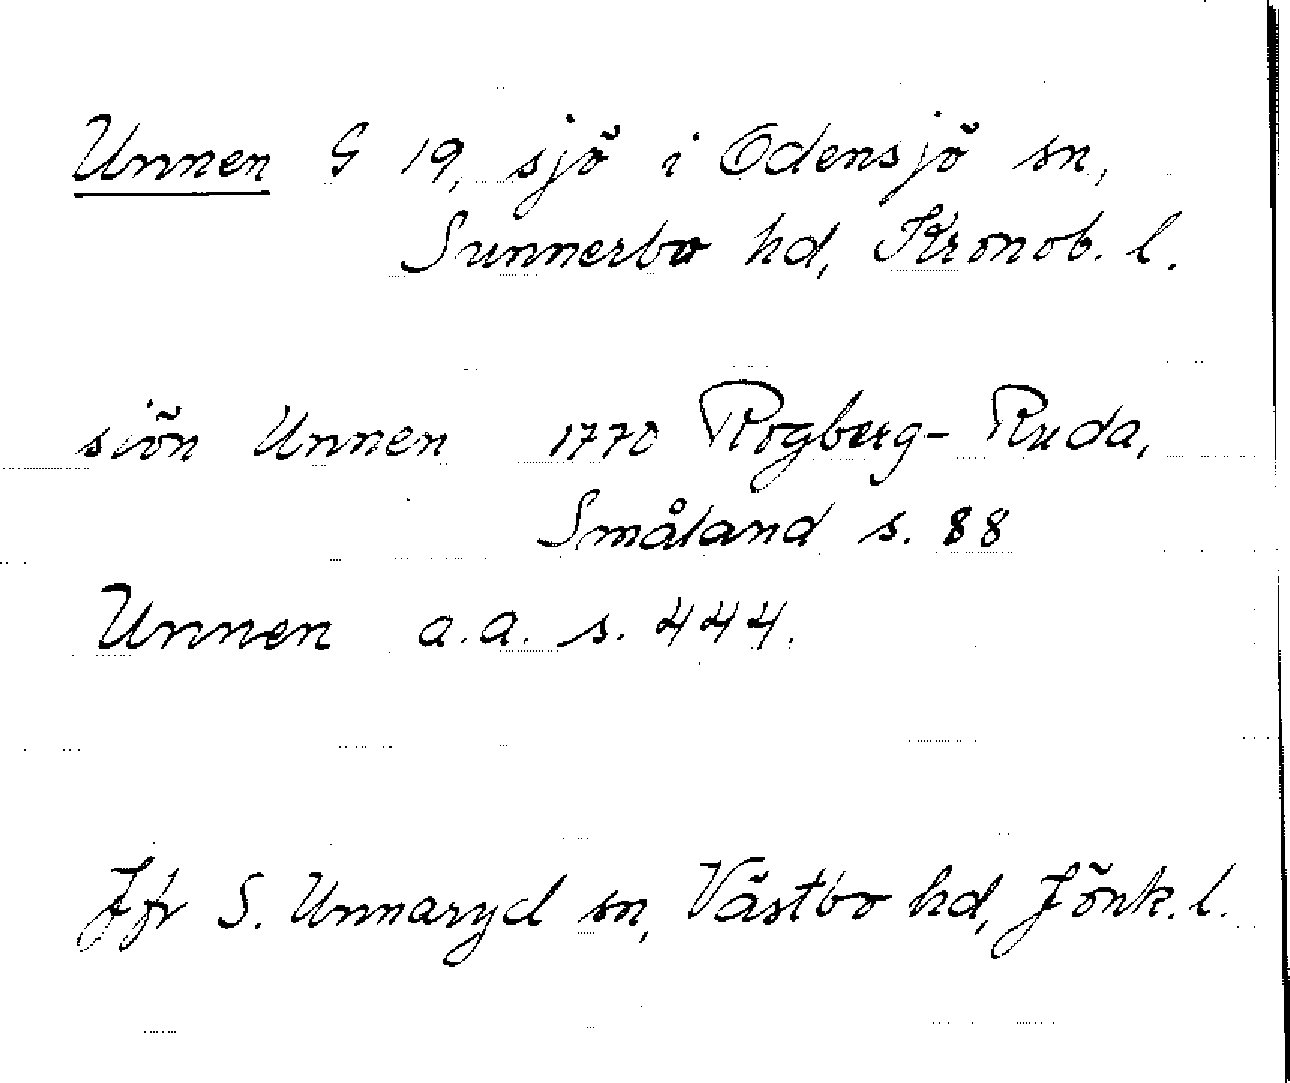 Unnen G 19, sjö i Odensjö sn,
Sunnerbo hd, Kronob. l.
siön Unnen 1770 Rogberg-Ruda,
Småland s. 88
Unnen a.a. s. 444.
Jfr S. Unnaryd sn, Västbo hd, Jönk. l.